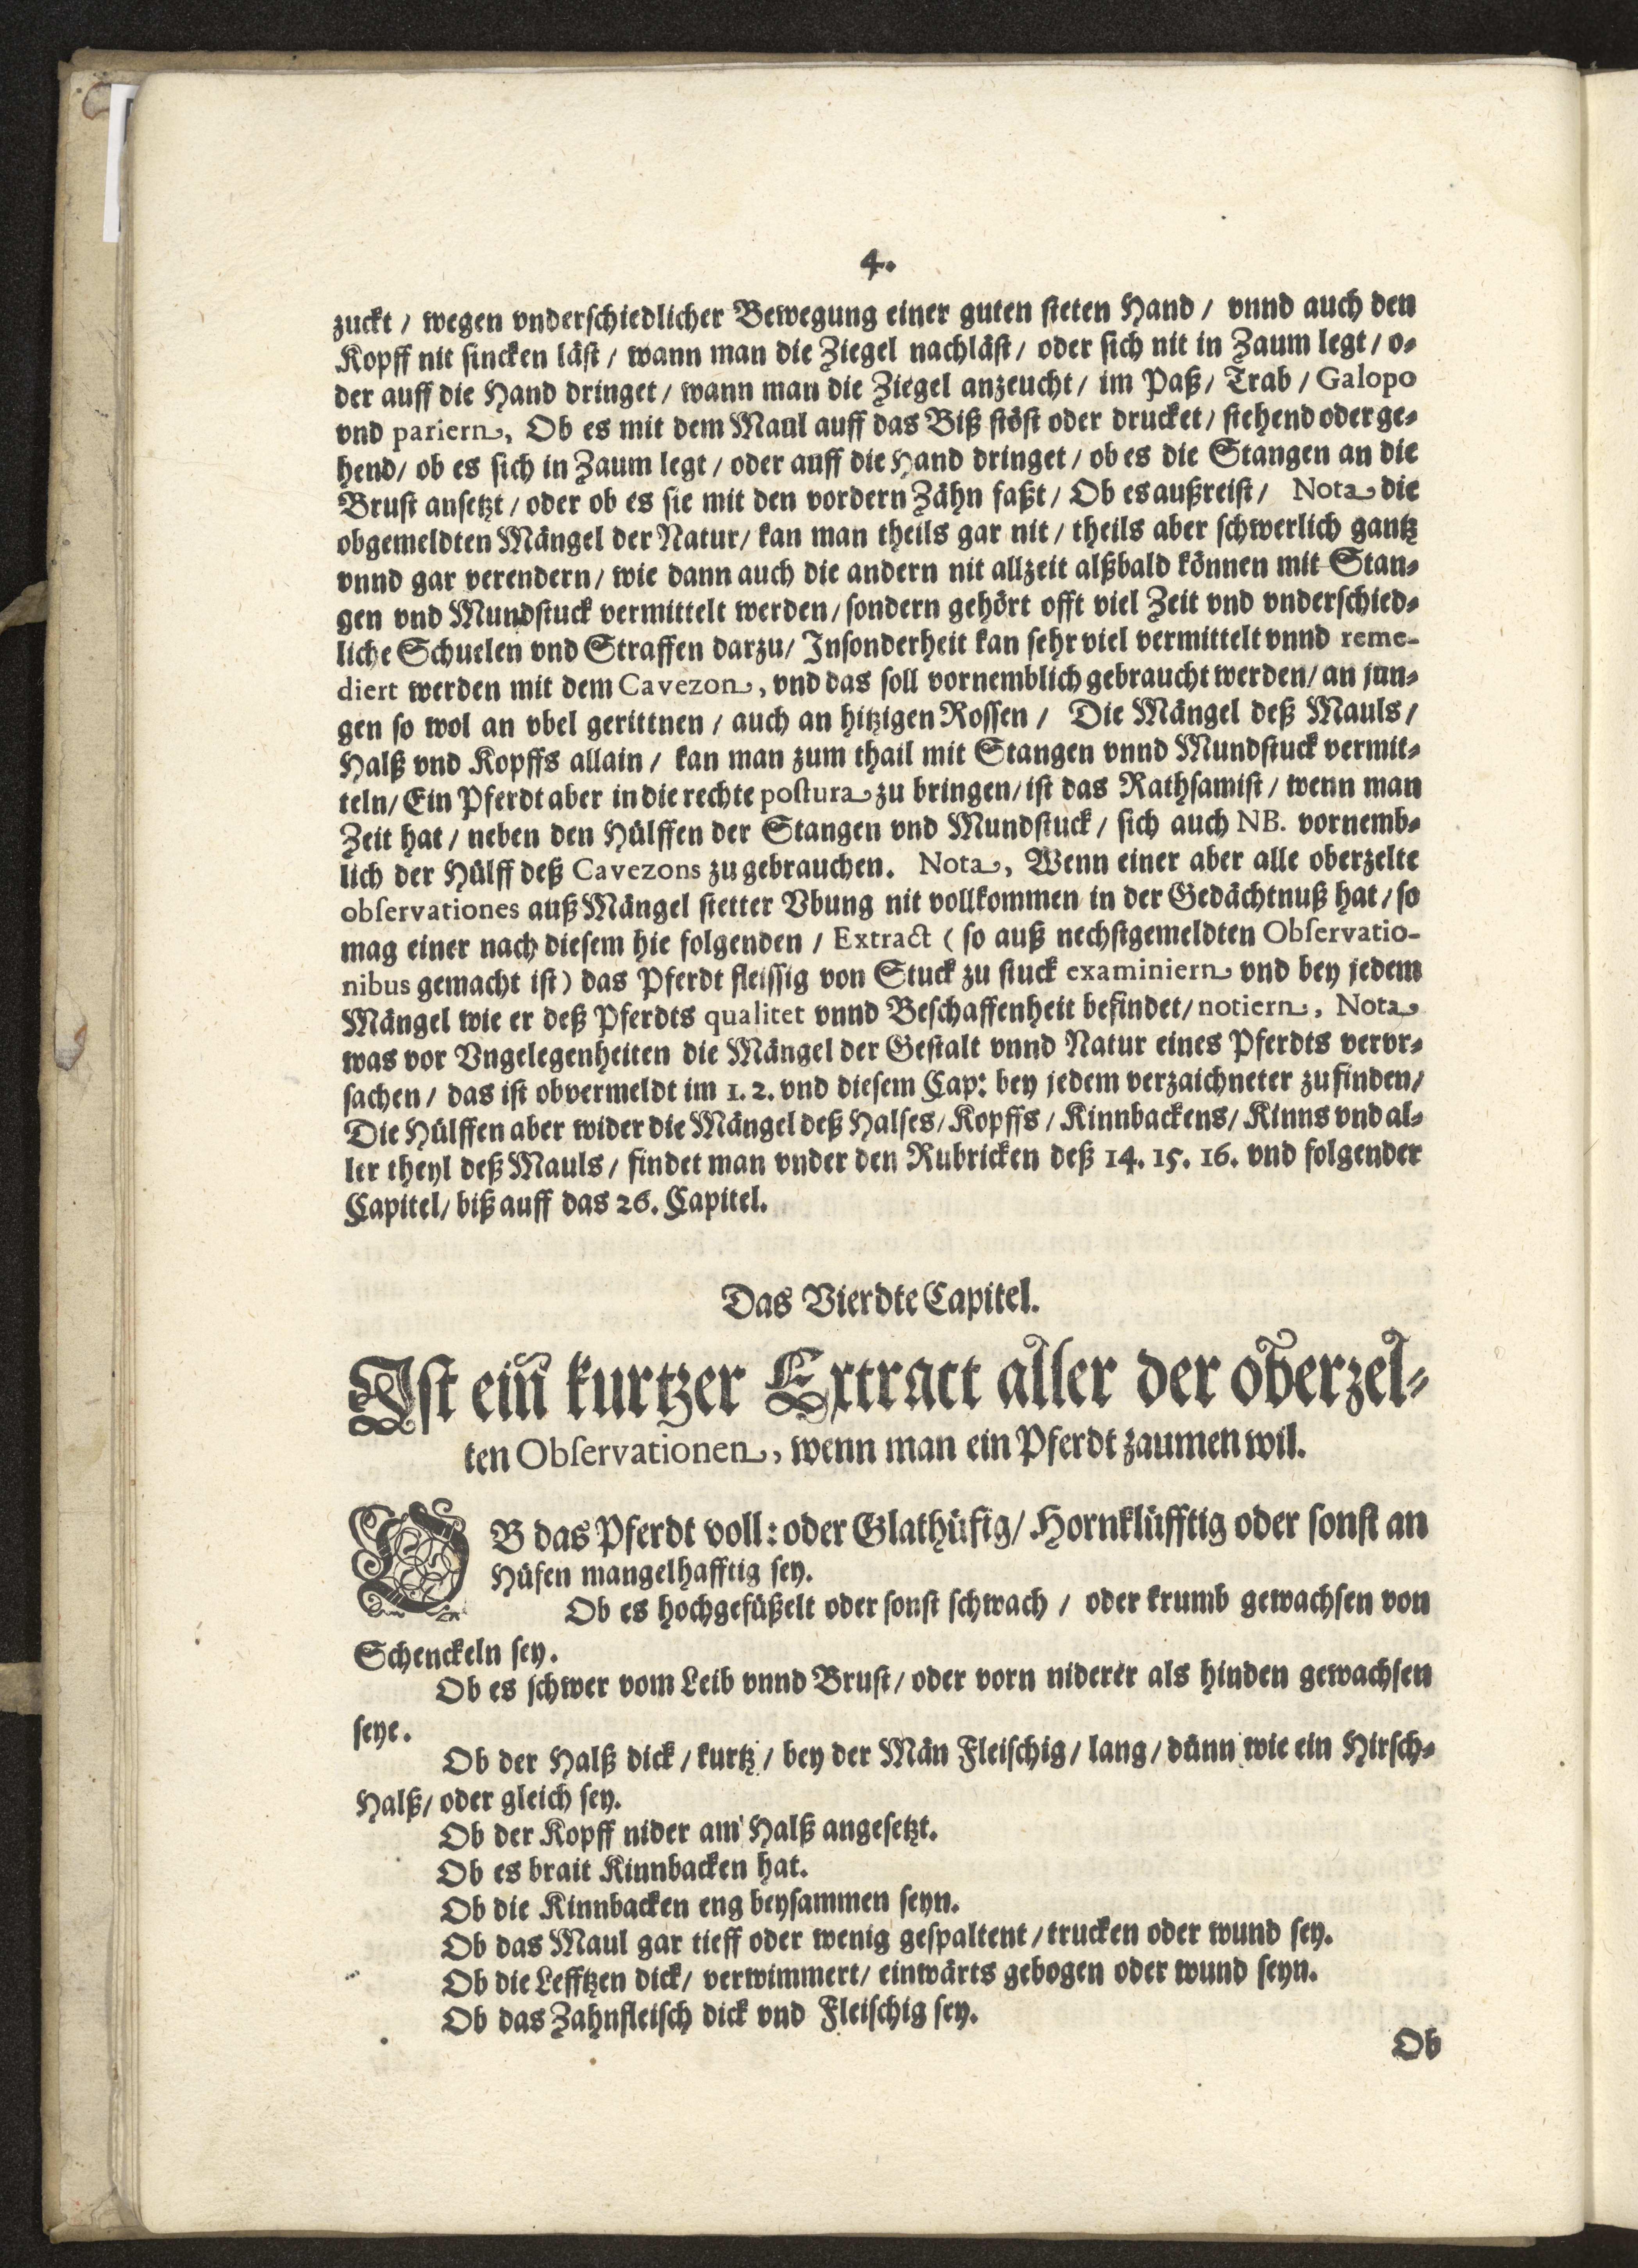 4.
zuckt / wegen vnderschiedlicher Bewegung einer guten steten Hand / vnnd auch den
Kopff nit sincken läst / wann man die Ziegel nachläst / oder sich nit in Zaum legt / o-
der auff die Hand dringet / wann man die Ziegel anzeucht / im Paß / Trab / Galopo
vnd pariern, Ob es mit dem Maul auff das Biß stöst oder drucket / stehend oder ge-
hend / ob es sich in Zaum legt / oder auff die Hand dringet / ob es die Stangen an die
Brust ansetzt / oder ob es sie mit den vordern Zähn faßt / Ob es außreist / Nota die
obgemeldten Mängel der Natur / kan man theils gar nit / theils aber schwerlich gantz
vnnd gar verendern / wie dann auch die andern nit allzeit alßbald können mit Stan-
gen vnd Mundstuck vermittelt werden / sondern gehört offt viel Zeit vnd vnderschied-
liche Schuelen vnd Straffen darzu / Insonderheit kan sehr viel vermittelt vnnd reme-
diert werden mit dem Cavezon, vnd das soll vornemblich gebraucht werden / an jun-
gen so wol an vbel gerittnen / auch an hitzigen Rossen / Die Mängel deß Mauls /
Halß vnd Kopffs allain / kan man zum thail mit Stangen vnnd Mundstuck vermit-
teln / Ein Pferdt aber in die rechte postura zu bringen / ist das Rathsamist / wenn man
Zeit hat / neben den Hülffen der Stangen vnd Mundstuck / sich auch NB. vornemb-
lich der Hülff deß Cavezons zu gebrauchen. Nota, Wenn einer aber alle oberzelte
observationes auß Mängel stetter Vbung nit vollkommen in der Gedächtnuß hat / so
mag einer nach diesem hie folgenden / Extract ( so auß nechstgemeldten Observatio-
nibus gemacht ist) das Pferdt fleissig von Stuck zu stuck examiniern vnd bey jedem
Mängel wie er deß Pferdts qualitet vnnd Beschaffenheit befindet / notiern, Nota
was vor Vngelegenheiten die Mängel der Gestalt vnnd Natur eines Pferdts vervr-
sachen / das ist obvermeldt im 1. 2. vnd diesem Cap: bey jedem verzaichneter zu finden /
Die Hülffen aber wider die Mängel deß Halses / Kopffs / Kinnbackens / Kinns vnd al-
ler theyl deß Mauls / findet man vnder den Rubricken deß 14. 15. 16. vnd folgender
Capitel / biß auff das 26. Capitel.
Das Vierdte Capitel.
Ist ein kurtzer Extract aller der oberzel-
ten Observationen, wenn man ein Pferdt zaumen wil.
OB das Pferdt voll: oder Glathüfig / Hornklüfftig oder sonst an
Hüfen mangelhafftig sey.
Ob es hochgefüßelt oder sonst schwach / oder krumb gewachsen von
Schenckeln sey.
Ob es schwer vom Leib vnnd Brust / oder vorn niderer als hinden gewachsen
seye.
Ob der Halß dick / kurtz / bey der Män Fleischig / lang / dünn wie ein Hirsch-
Halß / oder gleich sey.
Ob der Kopff nider am Halß angesetzt.
Ob es brait Kinnbacken hat.
Ob die Kinnbacken eng beysammen seyn.
Ob das Maul gar tieff oder wenig gespaltent / trucken oder wund sey.
Ob die Lefftzen dick / verwimmert / einwärts gebogen oder wund seyn.
Ob das Zahnfleisch dick vnd Fleischig sey.
Ob